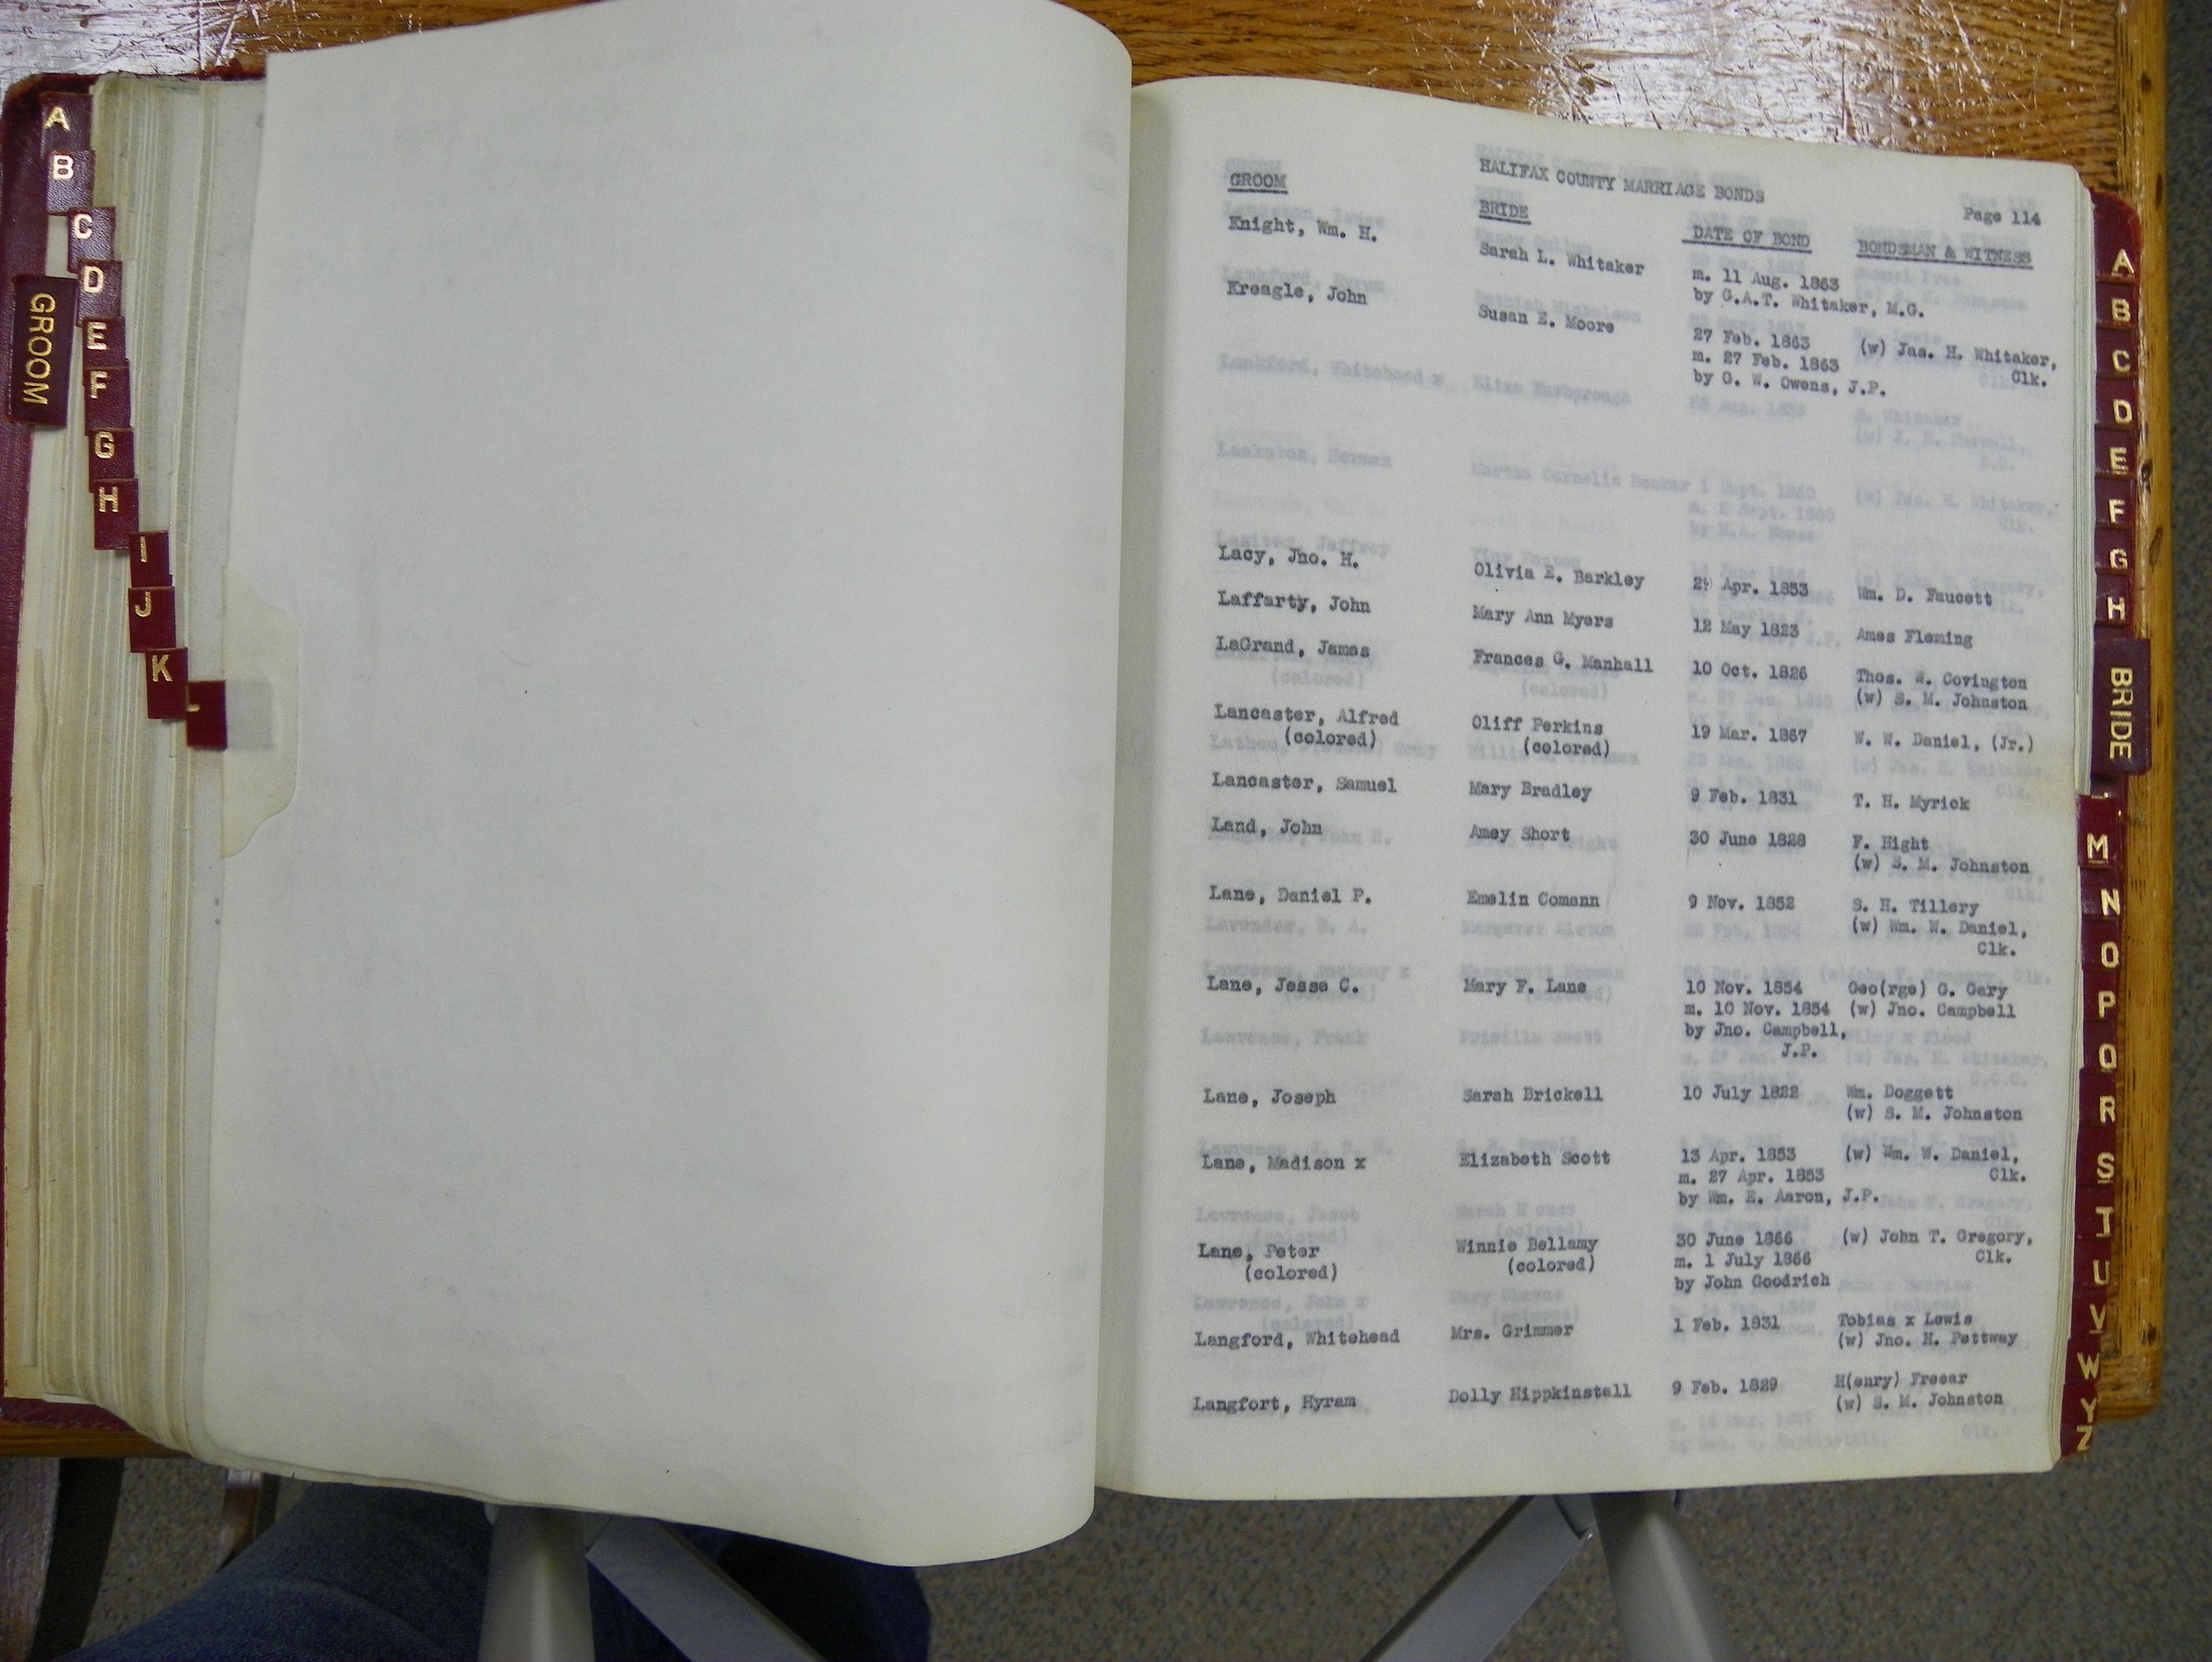 A
B
C
D
GROOM
E
F
G
H
I
J
K
HALIFAX COUNTY MARRIAGE BONDS
Page 114
GROOM BRIDE DATE OF BOND BONDSMAN & WITNESS
Knight, Wm. H. Sarah L. Whitaker m. 11 Aug. 1863
by G.A.T. Whitaker, M.G.
Kreagle, John Susan E. Moore 27 Feb. 1863 (w) Jas. H. Whitaker,
m. 27 Feb. 1863 Clk.
by G. W. Owens, J.P.
Lacy, Jno. H. Olivia E. Barkley Apr. 1853 Wm. D. Faucett
Laffarty, John Mary Ann Myers 12 May 1823 Ames Fleming
LaGrand, James Frances G. Manhall 10 Oct. 1826 Thos. W. Covington
(w) S. M. Johnston
Lancaster, Alfred Oliff Perkins 19 Mar. 1867 W. W. Daniel, (Jr.)
(colored) (colored)
Lancaster, Samuel Mary Bradley 9 Feb. 1831 T. H. Myrick
Land, John Amey Short 30 June 1828 F. Hight
(w) S. M. Johnston
Lane, Daniel P. Emelin Comann 9 Nov. 1852 S. H. Tillery
(w) Wm. W. Daniel,
Clk.
Lane, Jesse C. Mary F. Lane 10 Nov. 1854 Geo(rge) G. Gary
m. 10 Nov. 1854 (w) Jno. Campbell
by Jno. Campbell,
J.P.
Lane, Joseph Sarah Brickell 10 July 1822 Wm. Doggett
(w) S. M. Johnston
Lane, Madison x Elizabeth Scott 13 Apr. 1853 (w) Wm. W. Daniel,
m. 27 Apr. 1853 Clk.
by Wm. E. Aaron, J.P.
Lane, Peter Winnie Bellamy 30 June 1866 (w) John T. Gregory,
(colored) (colored) m. 1 July 1866 Clk.
by John Goodrich
Langford, Whitehead Mrs. Grimmer 1 Feb. 1831 Tobias x Lewis
(w) Jno. H. Pettway
Langfort, Hyram Dolly Hippkinstall 9 Feb. 1829 H(enry) Freear
(w) S. M. Johnston
A
B
C
D
E
F
G
H
BRIDE
M
N
O
P
Q
R
S
T
U
V
W
Y
Z